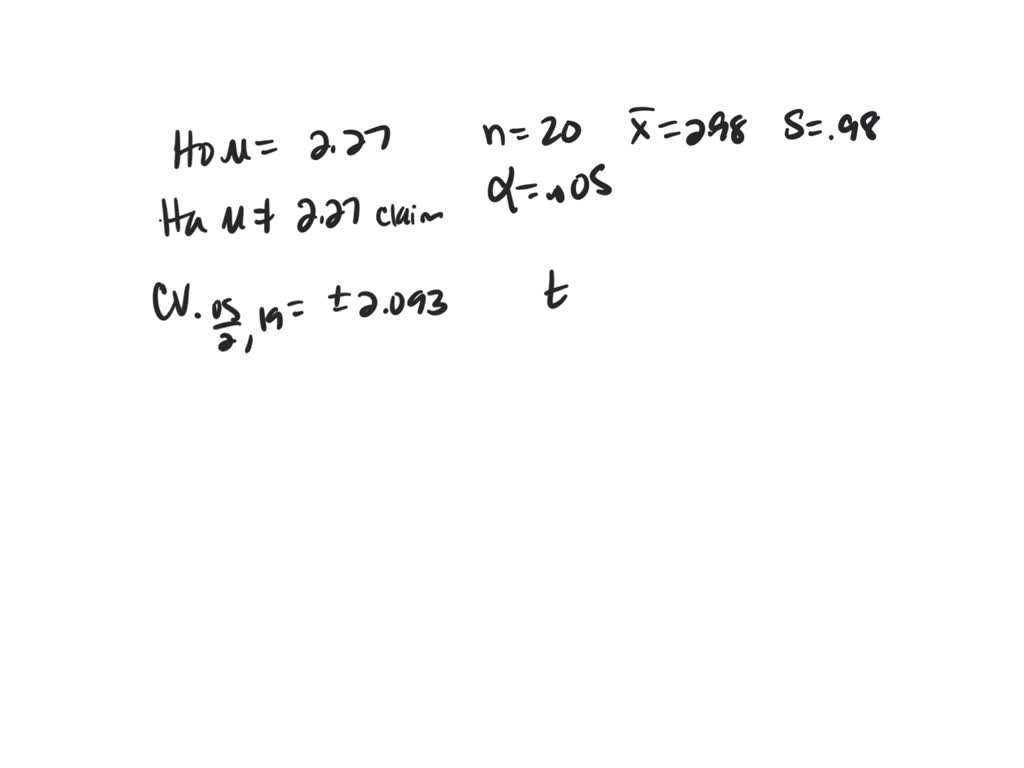 Ho μ = 2.27 n = 20 x̄ = 298 S = .98
Ha μ ≠ 2.27 claim α = .05
CV. 05/2, 19 = ± 2.093 t